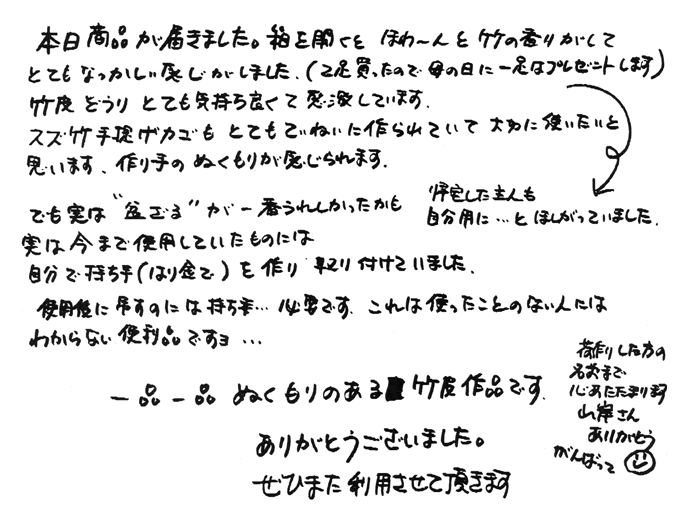 本日商品が届きました。箱を開くと ほわ〜んと 竹の香りがして
とてもなつかしい感じがしました。(2足買ったので母の日に一足はプレゼントします)
竹皮ぞうり とても気持ち良くて 感激しています。
スズ竹手提げカゴも とてもていねいに作られていて 大切に使いたいと
思います。作り手の ぬくもりが感じられます。
帰宅した主人も
自分用に…と ほしがっていました。
でも実は "盆ざる" が 一番うれしかったかも
実は今まで使用していたものには
自分で持ち手(はり金で)を作り 取り付けていました。
使用後に吊すのには持ち手…必要です。これは使ったことのない人には
わからない便利品ですョ…
一品一品 ぬくもりのある 竹皮作品です。
ありがとうございました。
ぜひまた利用させて頂きます
荷作りした方の
名前まで
心あたたまります
山岸さん
ありがとう
がんばって